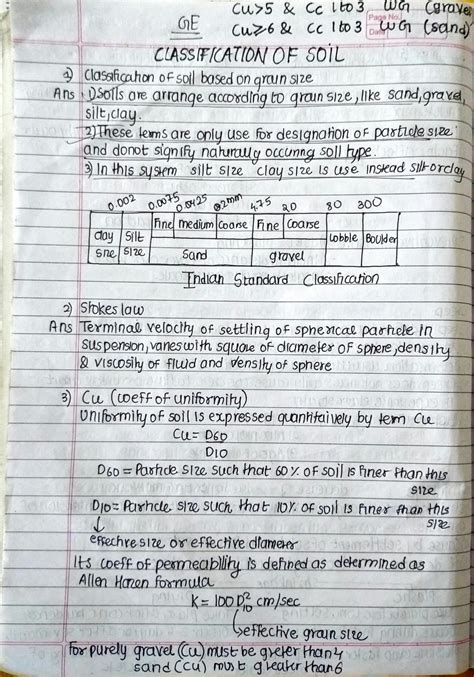 Cu>5 & Cc 1to3 WG (Gravel
GE Cu≥6 & Cc 1to3 WG (sand)
Page No.
Date
CLASSIFICATION OF SOIL
1) Classification of soil based on grain size
Ans :1)Soils are arrange according to grain size, like sand, gravel
silt, clay.
2) These terms are only use for designation of particle size
and donot signify naturally occuring soil type.
3) In this system silt size clay size is use instead silt or clay
0.002 0.0075 0.0425 02mm 4.75 20 80 300
Fine medium Coarse Fine Coarse
clay silt Cobble Boulder
size size Sand gravel
Indian Standard Classification
2) Stokes law
Ans Terminal velocity of settling of spherical particle in
suspension, varies with square of diameter of sphere, density
& viscosity of fluid and density of sphere
3) Cu (coeff of uniformity)
Uniformity of soil is expressed quantitaively by term Cu
Cu = D60
D10
D60 = Particle size such that 60% of soil is finer than this
size
D10 = Particle size such that 10% of soil is finer than this
size
effective size or effective diameter
Its coeff of permeability is defined as determined as
Allen Hazen formula
K = 100 D²10 cm/sec
effective grain size
for purely gravel (Cu) must be greter than 4
sand (Cu) must greater than 6